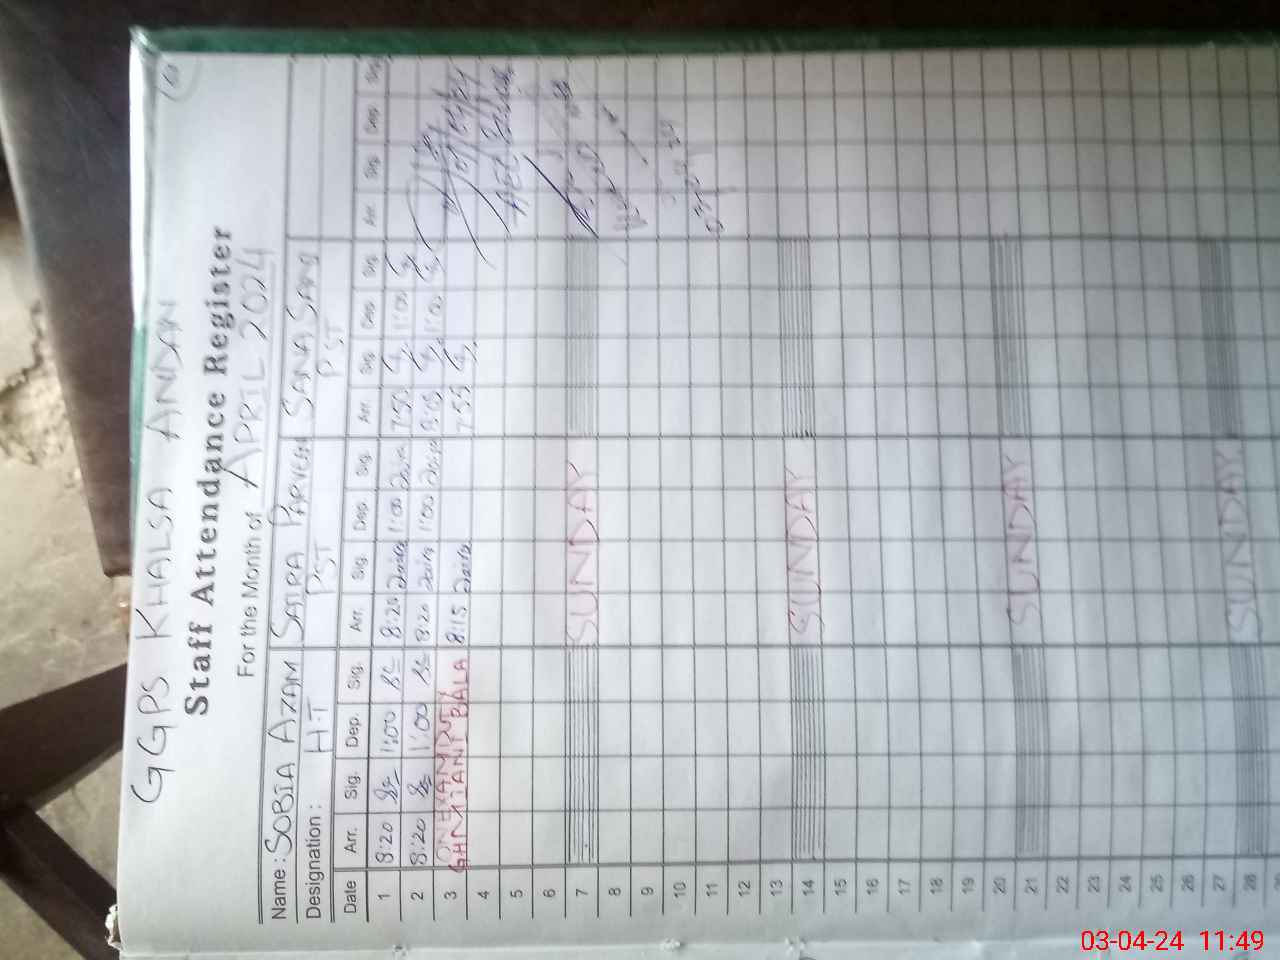 GGPS KHALSA ANDAN
Staff Attendance Register
For the Month of APRIL 2024
Name: SOBIA AZAM SAIRA PARVEEN SANA SANI
Designation: H.T PST PST
Date Arr. Sig. Dep. Sig. Arr. Sig. Dep. Sig. Arr. Sig. Dep. Sig. Arr. Sig. Dep. Sig.
1 8:20 1:00 8:20 Saira 1:00 Saira 7:50 1:00
2 8:20 1:00 8:20 Saira 1:00 Saira 8:05 1:00
3 ON EXAM DUTY 8:15 Saira 7:55
GHM JANI BALA
4
5
6
7 SUNDAY
8
9
10
11
12
13
14 SUNDAY
15
16
17
18
19
20
21 SUNDAY
22
23
24
25
26
27
28 SUNDAY
03-04-24 11:49